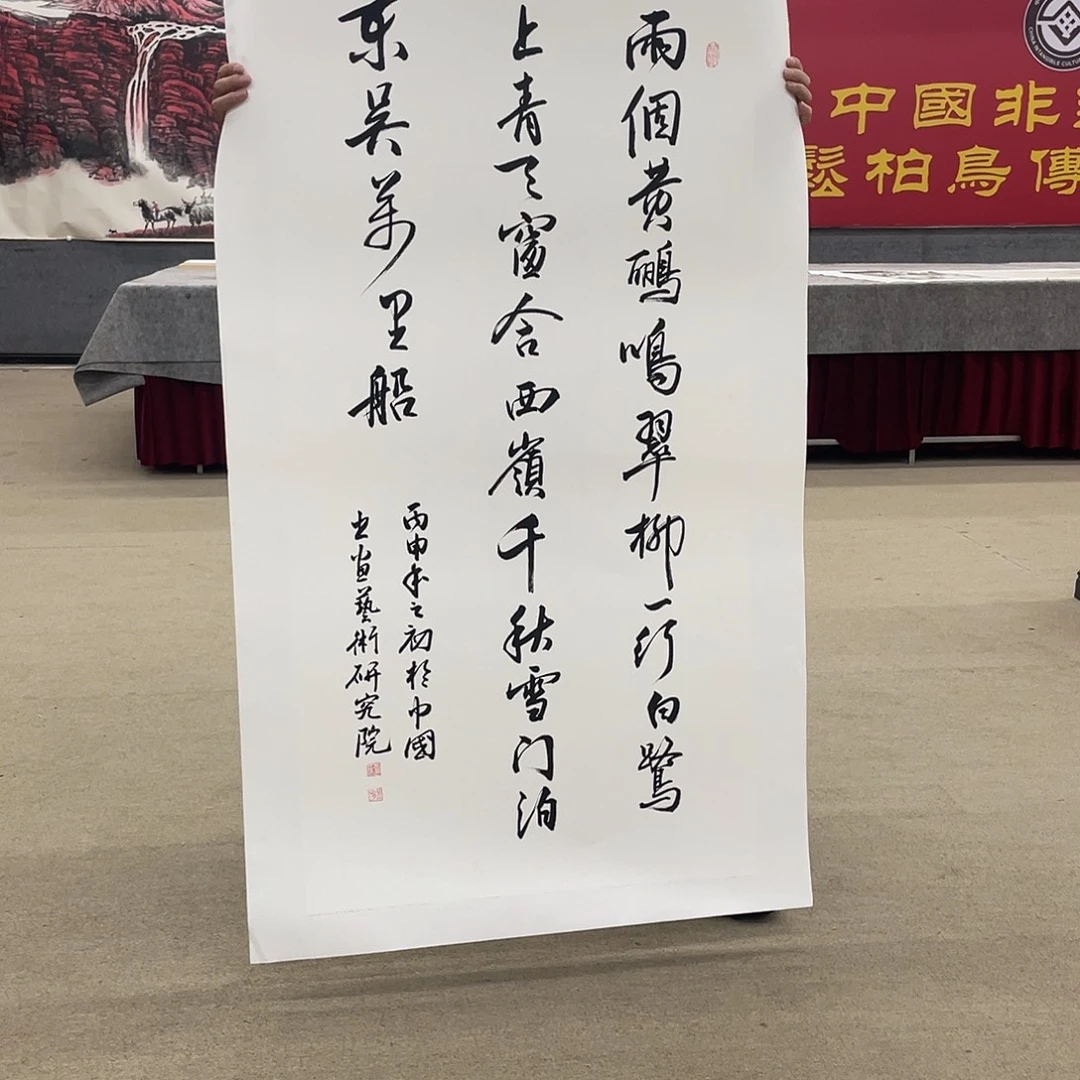 兩個黄鸝鳴翠柳一行白鷺
上青天窗含西嶺千秋雪门泊
东吴萬里船
丙申年之初於中國
书画藝術研究院
中國非
鬆柏鳥傳
CHINA INTANGIBLE